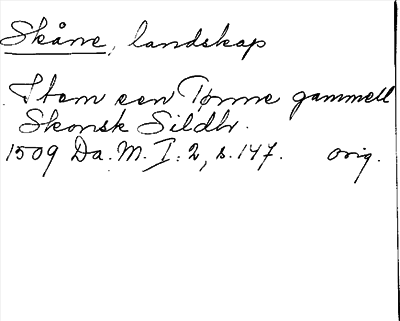 Skåne, landskap
Item een Tønne gammell
Skonsk Sildh.
1509 Da. M. I: 2, s. 147. orig.